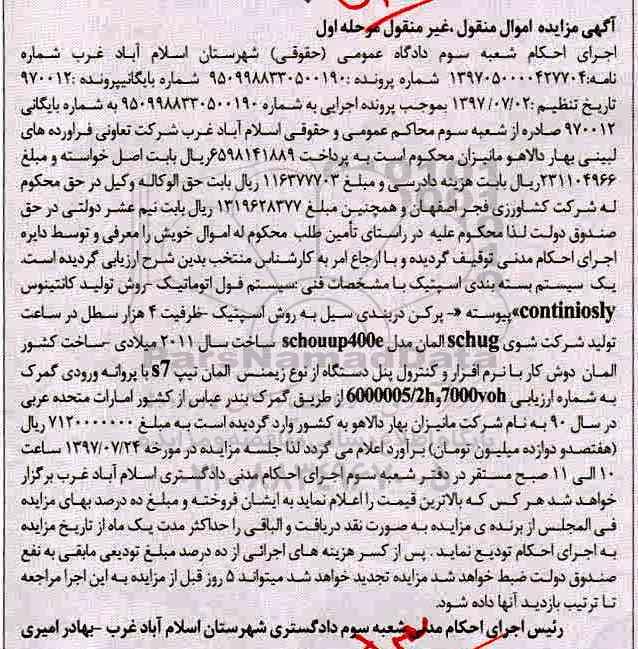 آگهی مزایده اموال منقول ،غیر منقول مرحله اول
اجرای احکام شعبه سوم دادگاه عمومی (حقوقی) شهرستان اسلام آباد غرب شماره
نامه:۱۳۹۷۰۵۰۰۰۰۴۲۷۷۰۴ شماره پرونده :۹۵۰۹۹۸۸۳۳۰۵۰۰۱۹۰ شماره بایگانیپرونده :۹۷۰۰۱۲
تاریخ تنظیم :۱۳۹۷/۰۷/۰۲ بموجب پرونده اجرایی به شماره ۹۵۰۹۹۸۸۳۳۰۵۰۰۱۹۰ به شماره بایگانی
۹۷۰۰۱۲ صادره از شعبه سوم محاکم عمومی و حقوقی اسلام آباد غرب شرکت تعاونی فراورده های
لبینی بهار دالاهو مانیزان محکوم است به پرداخت ۶۵۹۸۱۴۱۸۸۹ریال بابت اصل خواسته و مبلغ
۲۳۱۱۰۴۹۶۶ریال بابت هزینه دادرسی و مبلغ ۱۱۶۳۷۷۷۰۳ ریال بابت حق الوکاله وکیل در حق محکوم
له شرکت کشاورزی فجر اصفهان و همچنین مبلغ ۱۳۱۹۶۲۸۳۷۷ ریال بابت نیم عشر دولتی در حق
صندوق دولت لذا محکوم علیه در راستای تأمین طلب محکوم له اموال خویش را معرفی و توسط دایره
اجرای احکام مدنی توقیف گردیده و با ارجاع امر به کارشناس منتخب بدین شرح ارزیابی گردیده است.
یک سیستم بسته بندی اسپتیک با مشخصات فنی :سیستم فول اتوماتیک -روش تولید کانتینوس
continiosly»پیوسته «- پرکن دربندی سیل به روش اسپتیک -ظرفیت ۴ هزار سطل در ساعت
تولید شرکت شوی schug المان مدل schouup400e ساخت سال ۲۰۱۱ میلادی -ساخت کشور
المان دوش کار با نرم افزار و کنترول پنل دستگاه از نوع زیمنس المان تیپ s7 با پروانه ورودی گمرک
به شماره ارزیابی 7000yoh و6000005/2h از طریق گمرک بندر عباس از کشور امارات متحده عربی
در سال ۹۰ به نام شرکت مانیزان بهار دالاهو به کشور وارد گردیده است به مبلغ ۷۱۲۰۰۰۰۰۰۰ ریال
(هفتصدو دوازده میلیون تومان) برآورد اعلام می گردد لذا جلسه مزایده در مورخه ۱۳۹۷/۰۷/۲۴ ساعت
۱۰ الی ۱۱ صبح مستقر در دفتر شعبه سوم اجرای احکام مدنی دادگستری اسلام آباد غرب برگزار
خواهد شد هر کس که بالاترین قیمت را اعلام نماید به ایشان فروخته و مبلغ ده درصد بهای مزایده
فی المجلس از برنده ی مزایده به صورت نقد دریافت و الباقی را حداکثر مدت یک ماه از تاریخ مزایده
به اجرای احکام تودیع نماید . پس از کسر هزینه های اجرائی از ده درصد مبلغ تودیعی مابقی به نفع
صندوق دولت ضبط خواهد شد مزایده تجدید خواهد شد میتواند ۵ روز قبل از مزایده به این اجرا مراجعه
تا ترتیب بازدید آنها داده شود.
رئیس اجرای احکام مدنی شعبه سوم دادگستری شهرستان اسلام آباد غرب -بهادر امیری